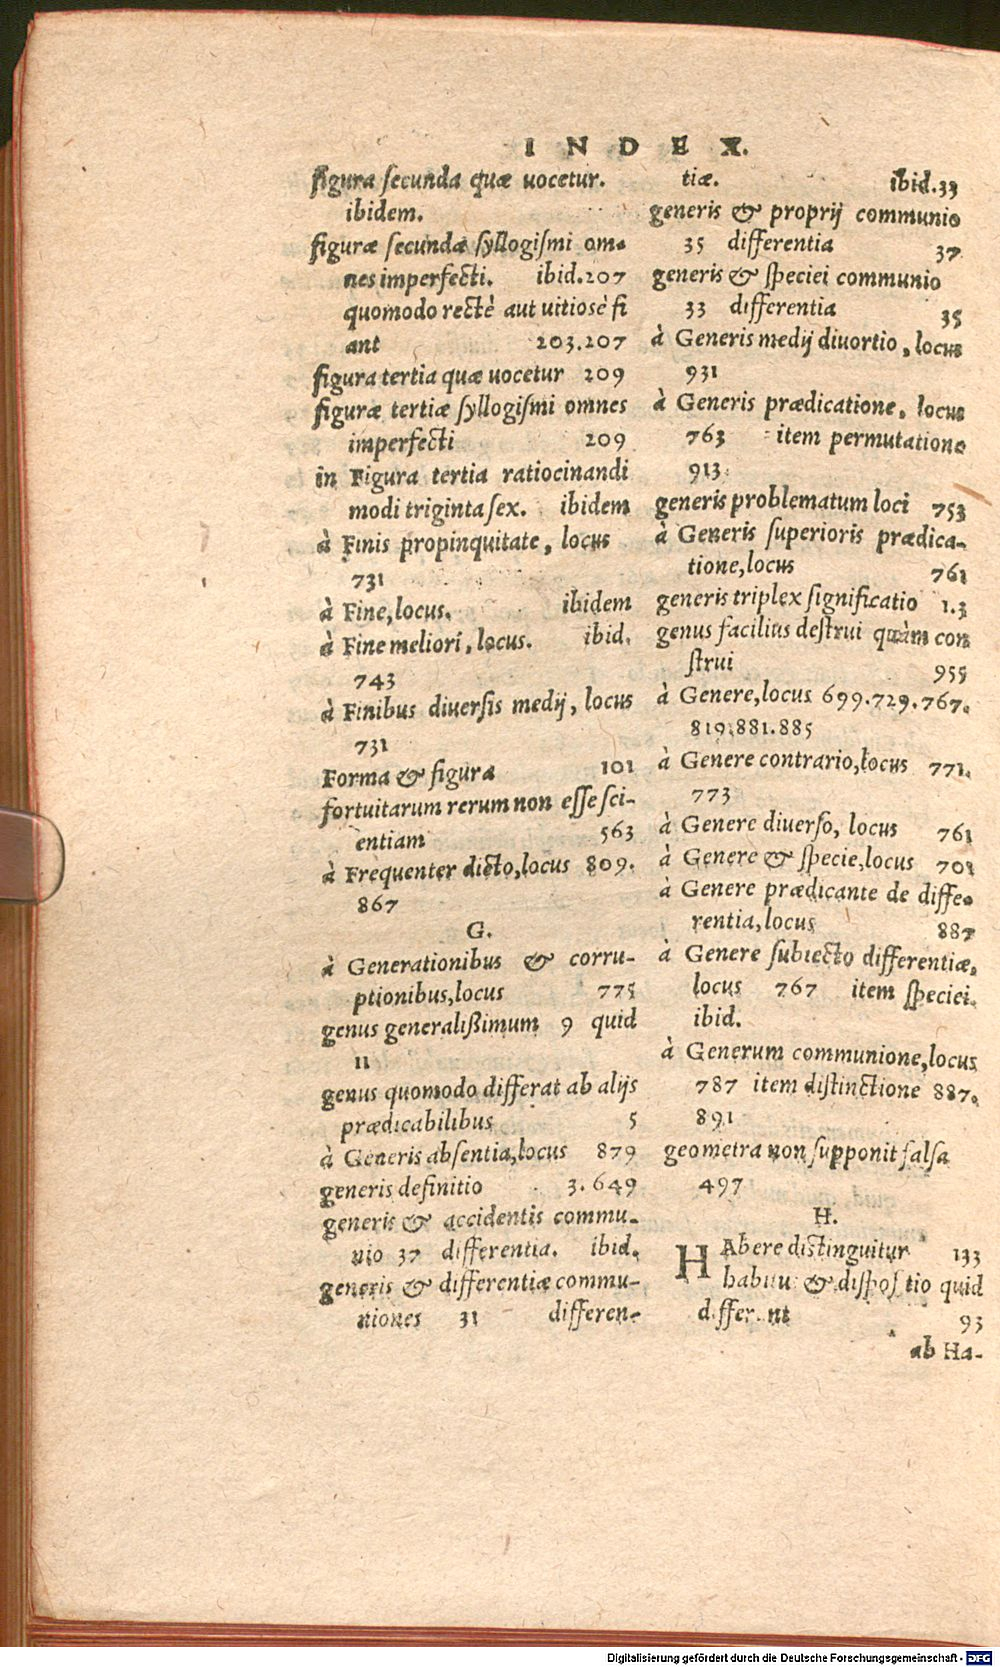 INDEX.
figura secunda quæ uocetur.
ibidem.
figuræ secundæ syllogismi om-
nes imperfecti. ibid.207
quomodo rectè aut uitiosè fi
ant 203.207
figura tertia quæ uocetur 209
figuræ tertiæ syllogismi omnes
imperfecti 209
in Figura tertia ratiocinandi
modi triginta sex. ibidem
à Finis propinquitate, locus
731
à Fine, locus. ibidem
à Fine meliori, locus. ibid.
743
à Finibus diuersis medij, locus
731
Forma & figura 101
fortuitarum rerum non esse sci-
entiam 563
à Frequenter dicto, locus 809.
867
G.
à Generationibus & corru-
ptionibus, locus 775
genus generalißimum 9 quid
11
genus quomodo differat ab alijs
prædicabilibus 5
à Generis absentia, locus 879
generis definitio 3.649
generis & accidentis commu-
nio 37 differentia. ibid.
generis & differentiæ commu-
niones 31 differen-
tiæ. ibid.33
generis & proprij communio
35 differentia 37
generis & speciei communio
33 differentia 35
à Generis medij diuortio, locus
931
à Generis prædicatione, locus
763 item permutatione
913
generis problematum loci 753
à Generis superioris prædica-
tione, locus 761
generis triplex significatio 1.3
genus facilius destrui quàm con
strui 955
à Genere, locus 699.729.767.
819.881.885
à Genere contrario, locus 771.
773
à Genere diuerso, locus 761
à Genere & specie, locus 701
à Genere prædicante de diffe-
rentia, locus 887
à Genere subiecto differentiæ,
locus 767 item speciei.
ibid.
à Generum communione, locus
787 item distinctione 887.
891
geometra non supponit falsa
497
H.
HAbere distinguitur 133
habitu & dispositio quid
differunt 93
ab Ha-
Digitalisierung gefördert durch die Deutsche Forschungsgemeinschaft - DFG